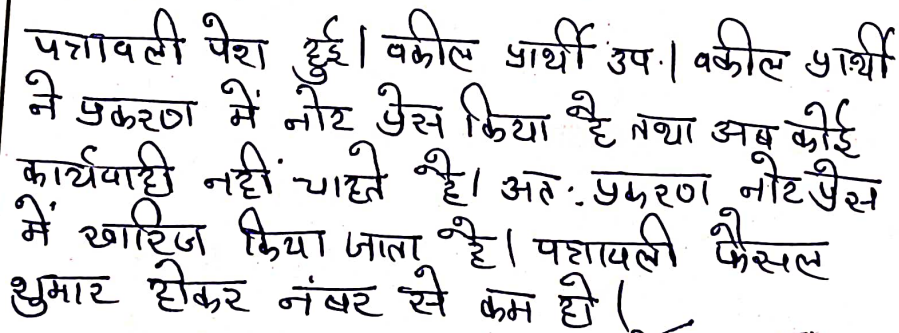 पत्रावली पेश हुई। वकील प्रार्थी उप.। वकील प्रार्थी
ने प्रकरण में नोट प्रेस किया है तथा अब कोई
कार्यवाही नहीं चाहते है। अत: प्रकरण नोट प्रेस
में खारिज किया जाता है। पत्रावली फैसल
शुमार होकर नंबर से कम हो।